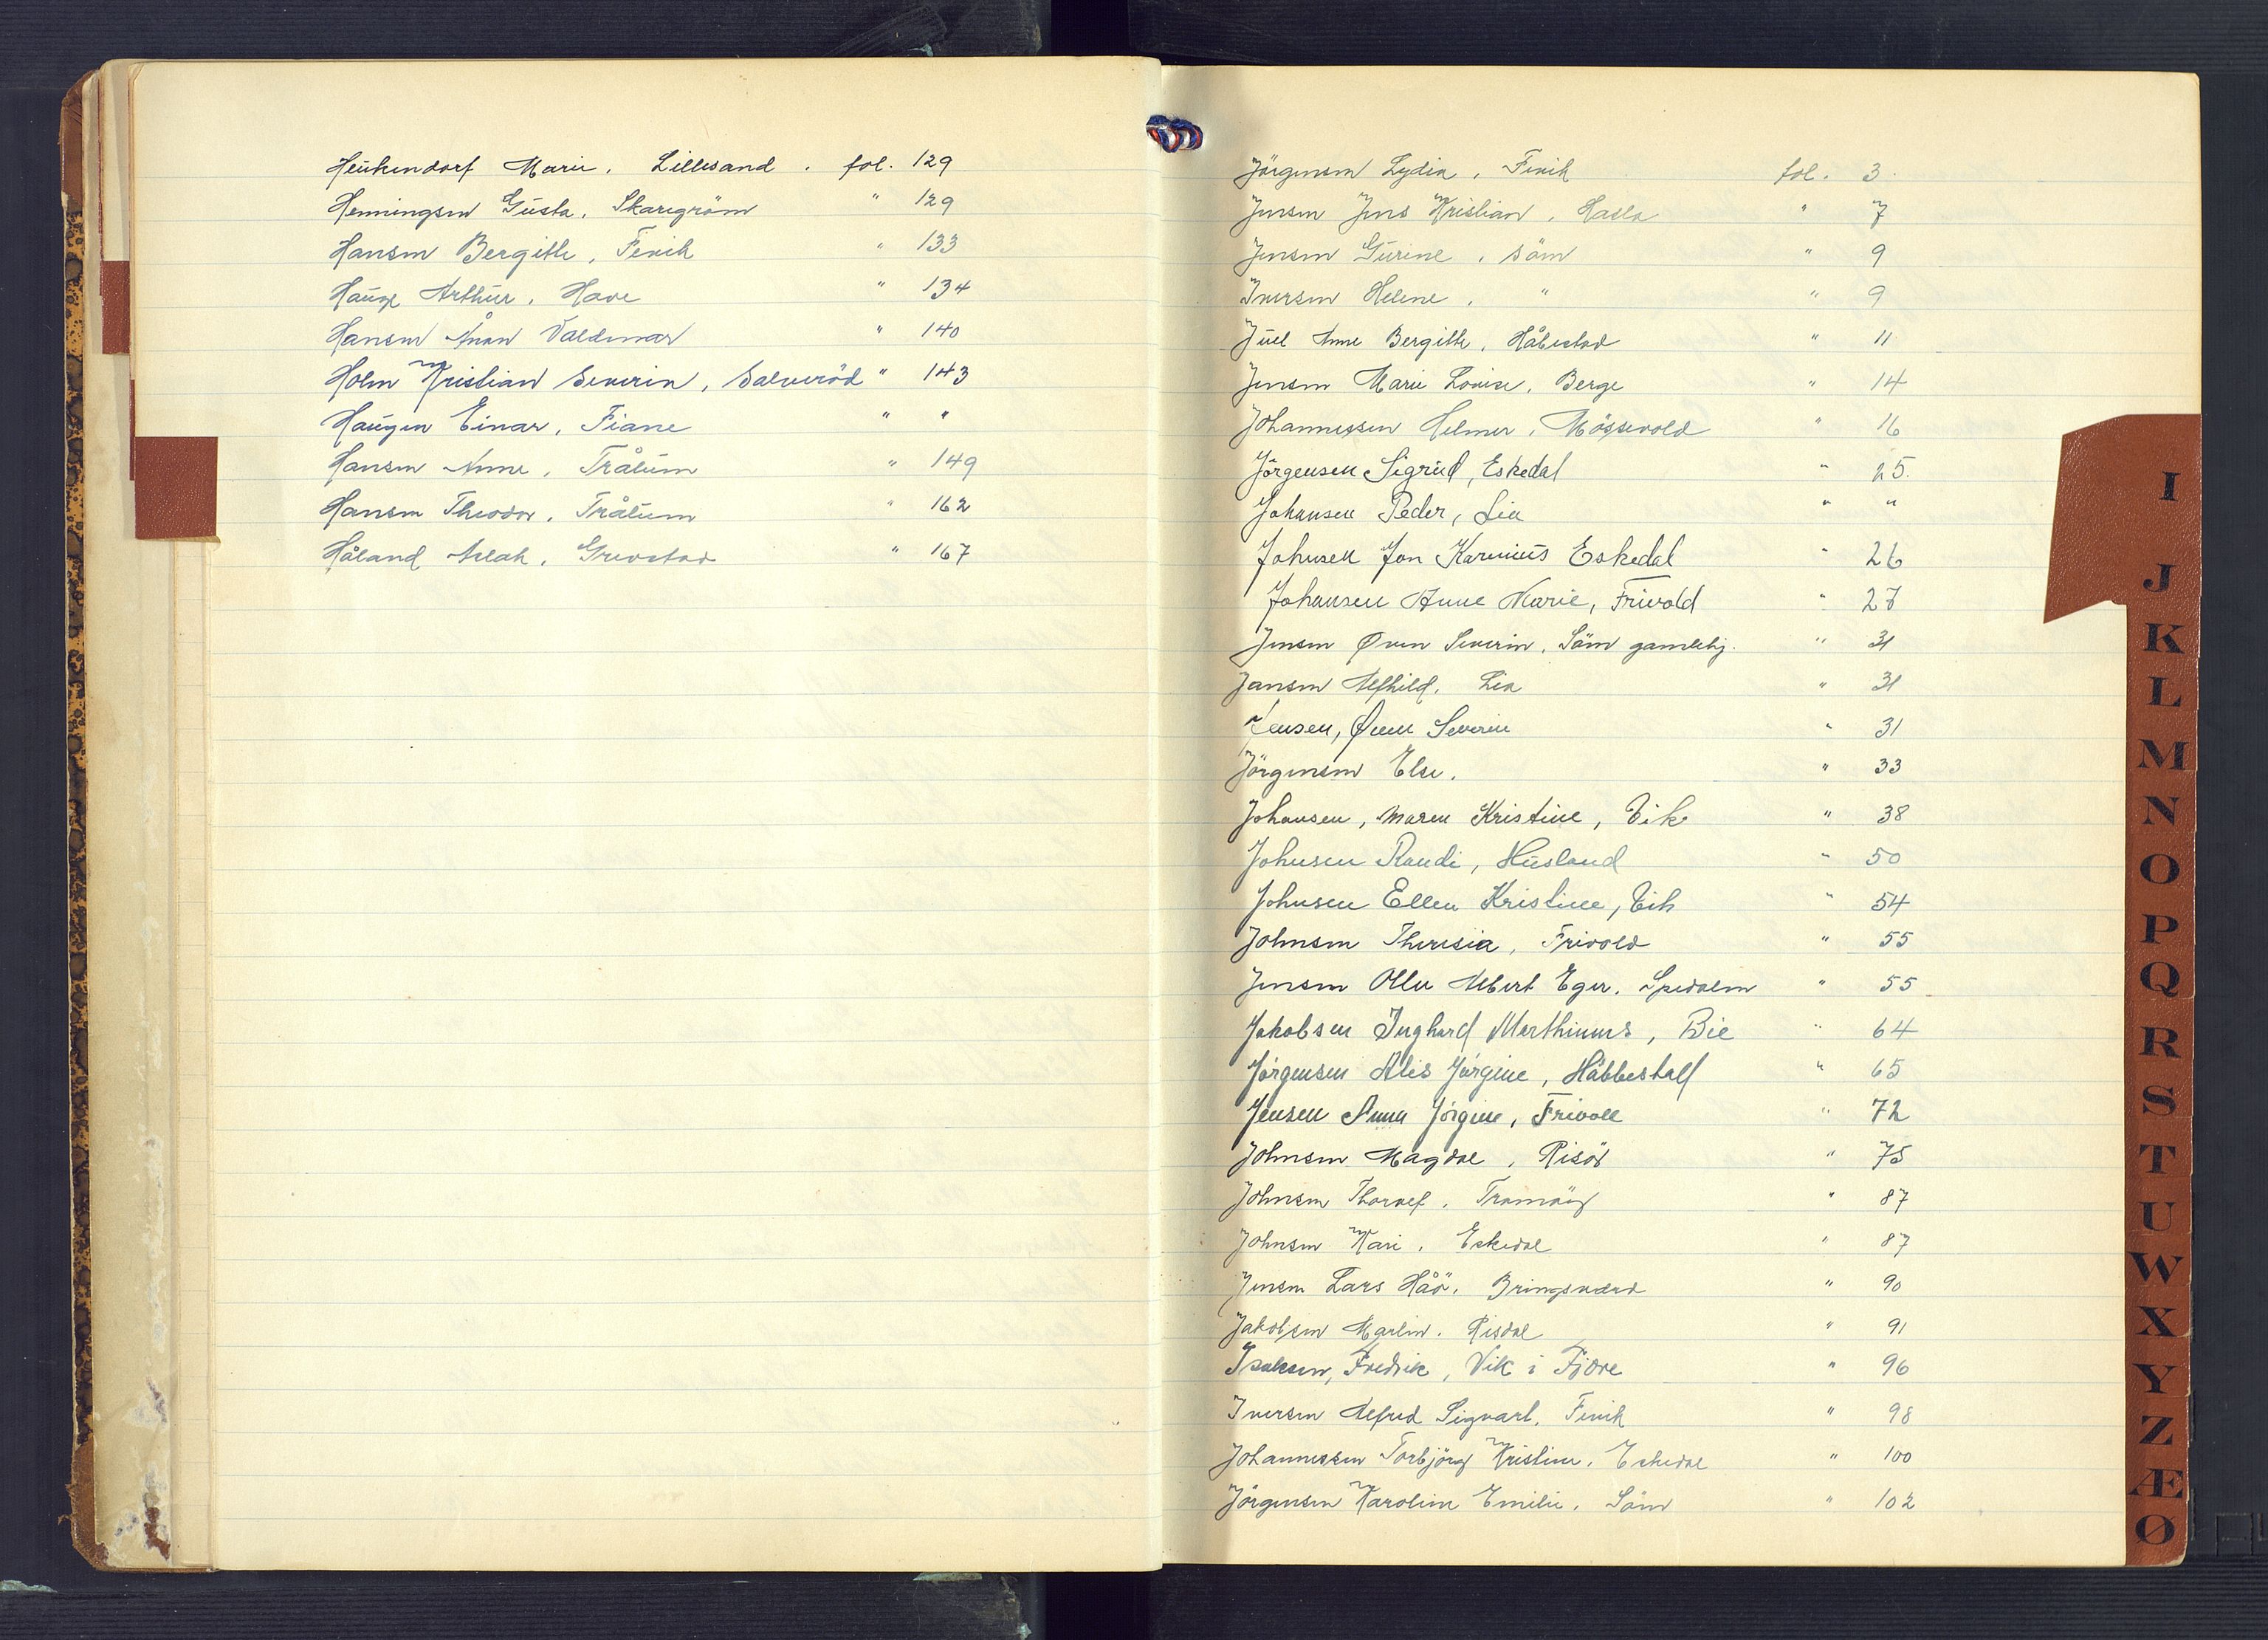 Heukendorf Marie. Lillesand. fol. 129
Henningsen Gusta. Skaregröm " 129
Hansen Bergithe, Fevik " 133
Hauge Arthur. Have " 134
Hansen Ånon Valdemar " 140
Holm Kristian Severin, Salveröd " 143
Haugen Einar, Fiane " "
Hansen Anne. Trålum " 149
Hansen Theodor. Trålum " 162
Håland Aslak. Grevstad " 167
Jörgensen Lydia. Fevik fol. 3
Jensen Jens Kristian. Hasla " 7
Jensen Gurine. Söm " 9
Iversen Helene. " " 9
Juel Anne Bergithe. Håbestad " 11
Jensen Marie Lovise. Berge " 14
Johannessen Helmer. Mössevold " 16
Jörgensen Sigrid, Eskedal " 25.
Johansen Peder, Lia " "
Johnsen Jon Karenius Eskedal " 26
Johansen Anne Marie, Frivold " 27
Jensen Øven Severin. Söm gamlehj. " 31
Jansen Alfhild. Lia " 31
Jensen, Øven Severin " 31
Jörgensen Else. " 33
Johansen, Maren Kristine, Eik " 38
Johnsen Randi, Husland " 50
Johnsen Ellen Kristine, Eik " 54
Johnsen Theresia, Frivold " 55
Jensen Olle Albert Eger. Spedalen " 55
Jakobsen Inghard Marthinius, Bie " 64
Jörgensen Alis Jörgine, Håbbestad " 65
Jensen Anna Jörgine, Frivoll " 72
Johnsen Magdal. Risör " 75
Johnsen Thoralf. Tromöy " 87
Johnsen Kari. Eskedal " 87
Jensen Lars Håö. Bringsværd " 90
Jakobsen Marlin. Risdal " 91
Isaksen, Fredrik, Vik i Fjære " 96
Iversen Alfred Sigvart. Fevik " 98
Johannessen Torbjörg Kristine. Eskedal " 100
Jörgensen Karoline Emilie. Söm " 102
I
J
K
L
M
N
O
P
Q
R
S
T
U
W
X
Y
Z
Æ
Ø